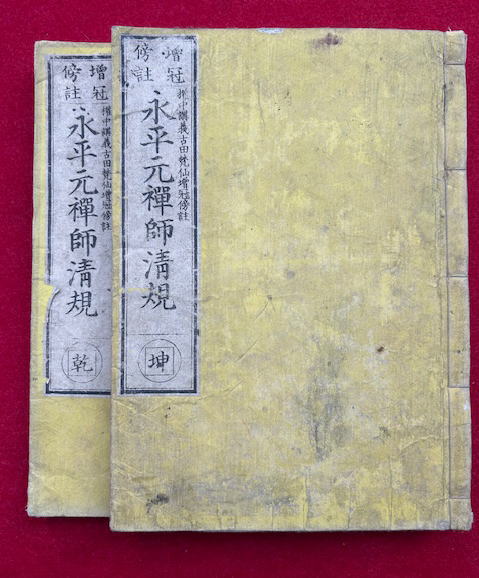 增冠
傍註
權中講義古田梵仙增冠傍註
永平元禪師清規
坤
增冠
傍註
權中講義古田梵仙增冠傍註
永平元禪師清規
乾